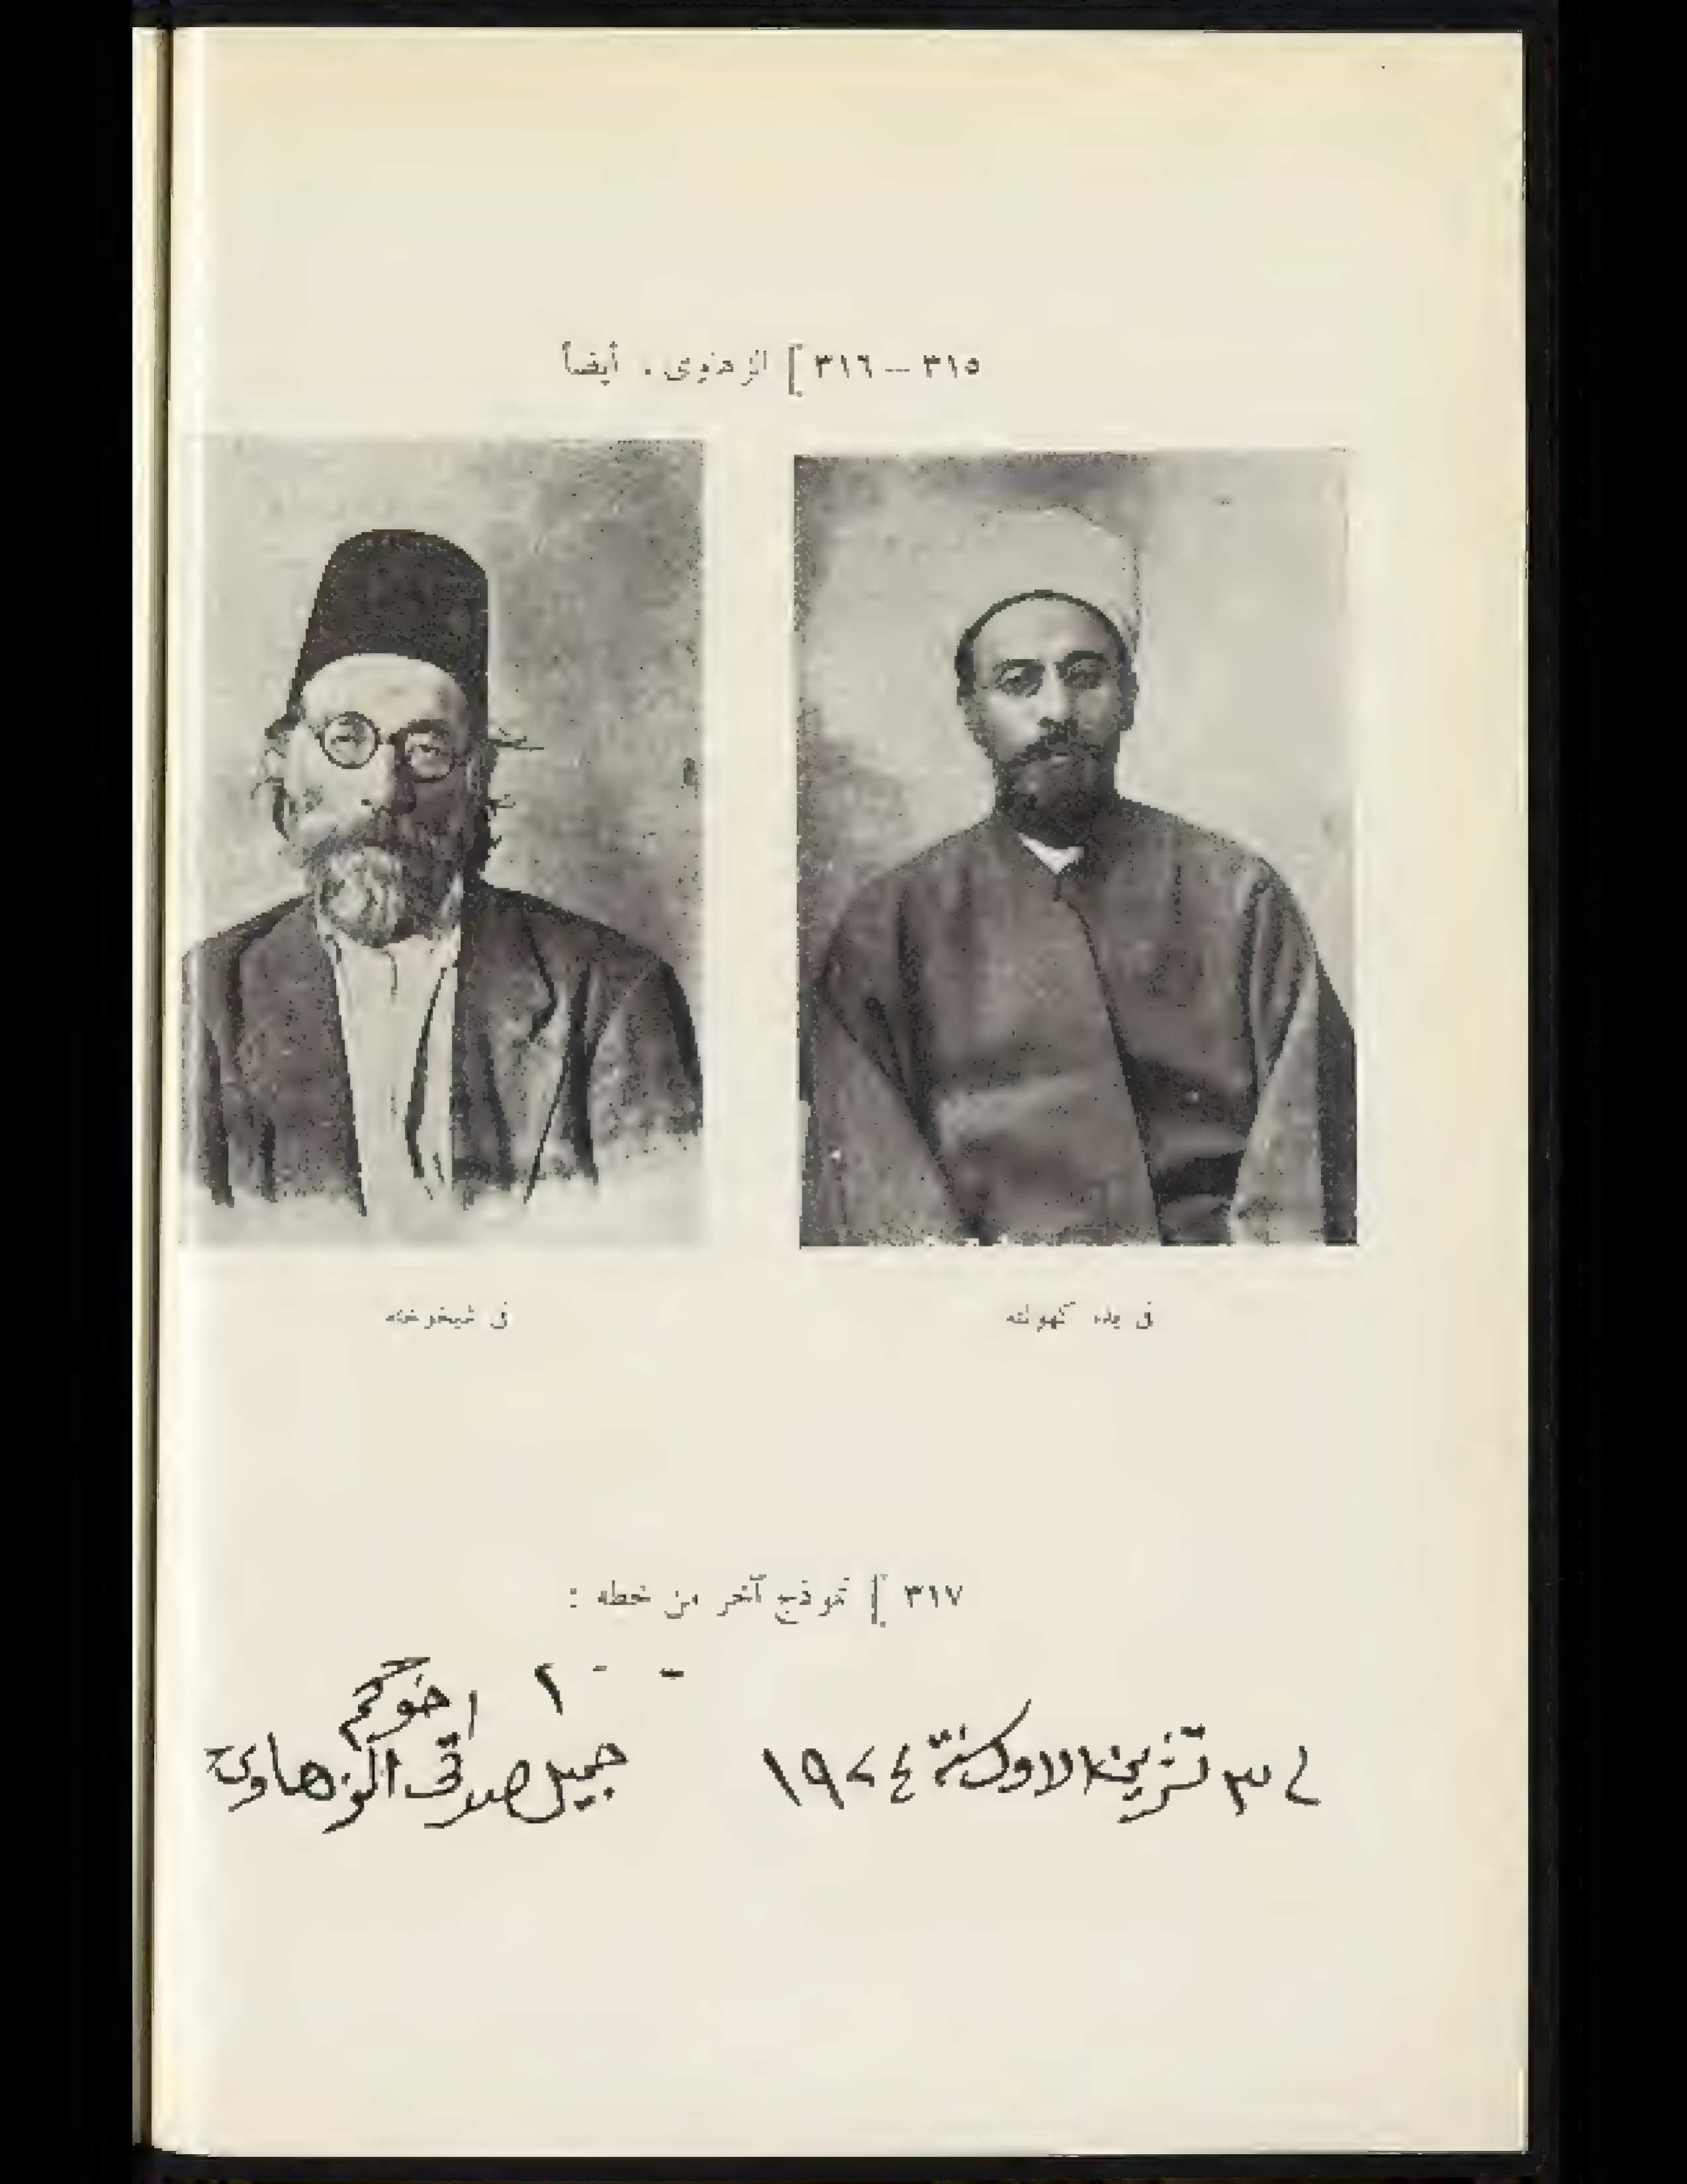 ٣١٥ – ٣١٦ ] الزهاوى ، أيضاً
فى بدء كهولته
فى شيخوخته
٣١٧ ] نموذج آخر من خطه :
اخوكم
تشرين الاول سنة ١٩٢٤
جميل صدقي الزهاوي